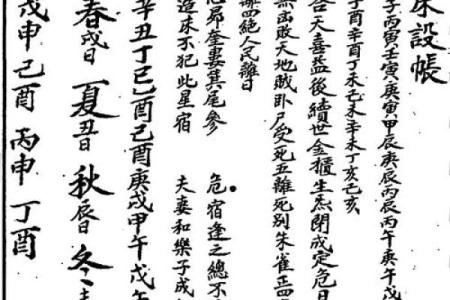 床設帳
子丙寅壬寅庚寅甲辰庚辰丙辰丙午庚午戊
酉辛酉丁未己未辛未丁亥己亥
天喜益後續世金匱生炁閉成定危日
敗天地賊卧尸受死五離死别朱雀正四
四絕人民離日
心昴奎婁箕尾參 危宿逢之總不
造床不犯此星宿 夫妻和樂子成
辛丑丁巳乙酉己酉庚戌甲午戊午
春戌日夏丑日秋辰日冬
戊申己酉丙申丁酉